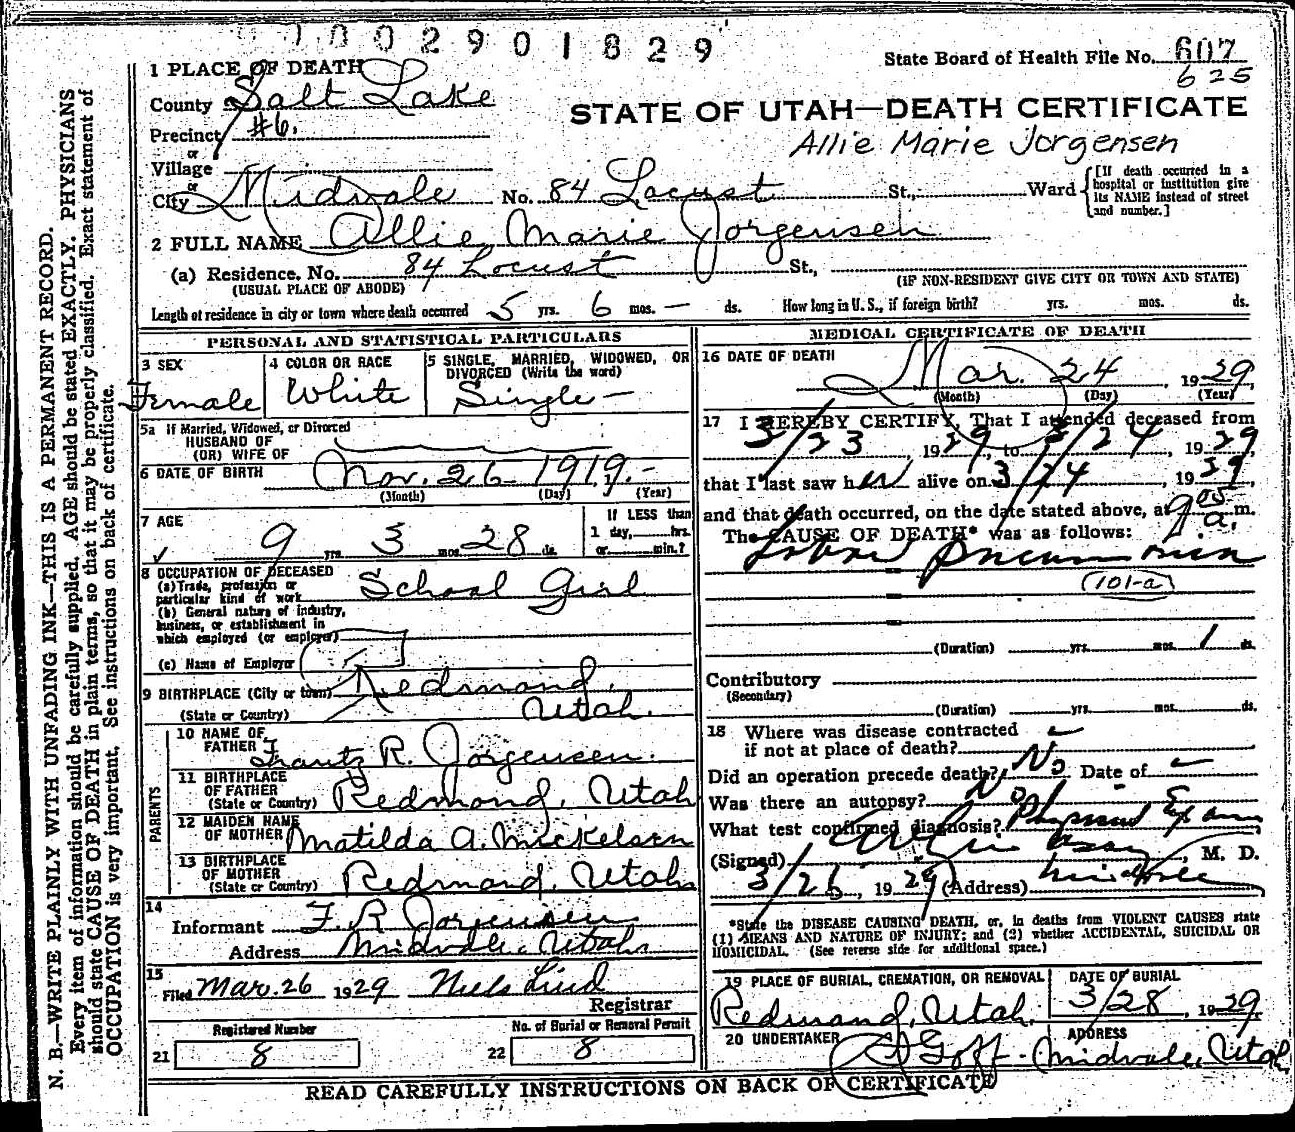 0 1 0 0 2 9 0 1 8 2 9
State Board of Health File No. 607
625
1 PLACE OF DEATH
County Salt Lake
STATE OF UTAH—DEATH CERTIFICATE
Precinct #6.
Allie Marie Jorgensen
or
Village
or
City Midvale No. 84 Locust St., Ward [If death occurred in a hospital or institution give its NAME instead of street and number.]
2 FULL NAME Allie Marie Jorgensen
(a) Residence. No. 84 Locust St.,
(USUAL PLACE OF ABODE) (IF NON-RESIDENT GIVE CITY OR TOWN AND STATE)
Length of residence in city or town where death occurred 5 yrs. 6 mos. — ds. How long in U. S., if foreign birth? yrs. mos. ds.
PERSONAL AND STATISTICAL PARTICULARS
3 SEX
Female
4 COLOR OR RACE
White
5 SINGLE, MARRIED, WIDOWED, OR
DIVORCED (Write the word)
Single —
5a If Married, Widowed, or Divorced
HUSBAND OF
(OR) WIFE OF
6 DATE OF BIRTH Nov. 26 1919.-
(Month) (Day) (Year)
7 AGE
9 yrs. 3 mos. 28 ds.
If LESS than
1 day, hrs.
or min.?
8 OCCUPATION OF DECEASED
(a) Trade, profession or
particular kind of work School Girl
(b) General nature of industry,
business, or establishment in
which employed (or employer)
(c) Name of Employer
9 BIRTHPLACE (City or town) Redmond,
(State or Country) Utah.
PARENTS
10 NAME OF
FATHER Frantz R. Jorgensen.
11 BIRTHPLACE
OF FATHER
(State or Country) Redmond, Utah
12 MAIDEN NAME
OF MOTHER Matilda A. Mickelsen
13 BIRTHPLACE
OF MOTHER
(State or Country) Redmond, Utah
14
Informant F. R. Jorgensen
Address Midvale, Utah
15
Filed Mar. 26 1929 Niels Lind
Registrar
Registered Number
21 8
No. of Burial or Removal Permit
22 8
MEDICAL CERTIFICATE OF DEATH
16 DATE OF DEATH
Mar. 24, 1929
(Month) (Day) (Year)
17 I HEREBY CERTIFY, That I attended deceased from
3/23, 1929, to 3/24, 1929,
that I last saw her alive on 3/24, 1929,
and that death occurred, on the date stated above, at 9 05 a. m.
The CAUSE OF DEATH* was as follows:
Lobar Pneumonia
(101-a)
(Duration) yrs. mos. 1 ds.
Contributory
(Secondary)
(Duration) yrs. mos. ds.
18 Where was disease contracted
if not at place of death?
Did an operation precede death? No Date of
Was there an autopsy? No
What test confirmed diagnosis? Physical Exam
(Signed) , M. D.
3/26, 1929 (Address) Midvale
*State the DISEASE CAUSING DEATH, or, in deaths from VIOLENT CAUSES state
(1) MEANS AND NATURE OF INJURY; and (2) whether ACCIDENTAL, SUICIDAL OR
HOMICIDAL. (See reverse side for additional space.)
19 PLACE OF BURIAL, CREMATION, OR REMOVAL
Redmond, Utah.
DATE OF BURIAL
3/28, 1929
20 UNDERTAKER
Goff -
ADDRESS
Midvale, Utah
READ CAREFULLY INSTRUCTIONS ON BACK OF CERTIFICATE
N. B.—WRITE PLAINLY WITH UNFADING INK—THIS IS A PERMANENT RECORD.
Every item of information should be carefully supplied. AGE should be stated EXACTLY. PHYSICIANS
should state CAUSE OF DEATH in plain terms, so that it may be properly classified. Exact statement of
OCCUPATION is very important. See instructions on back of certificate.